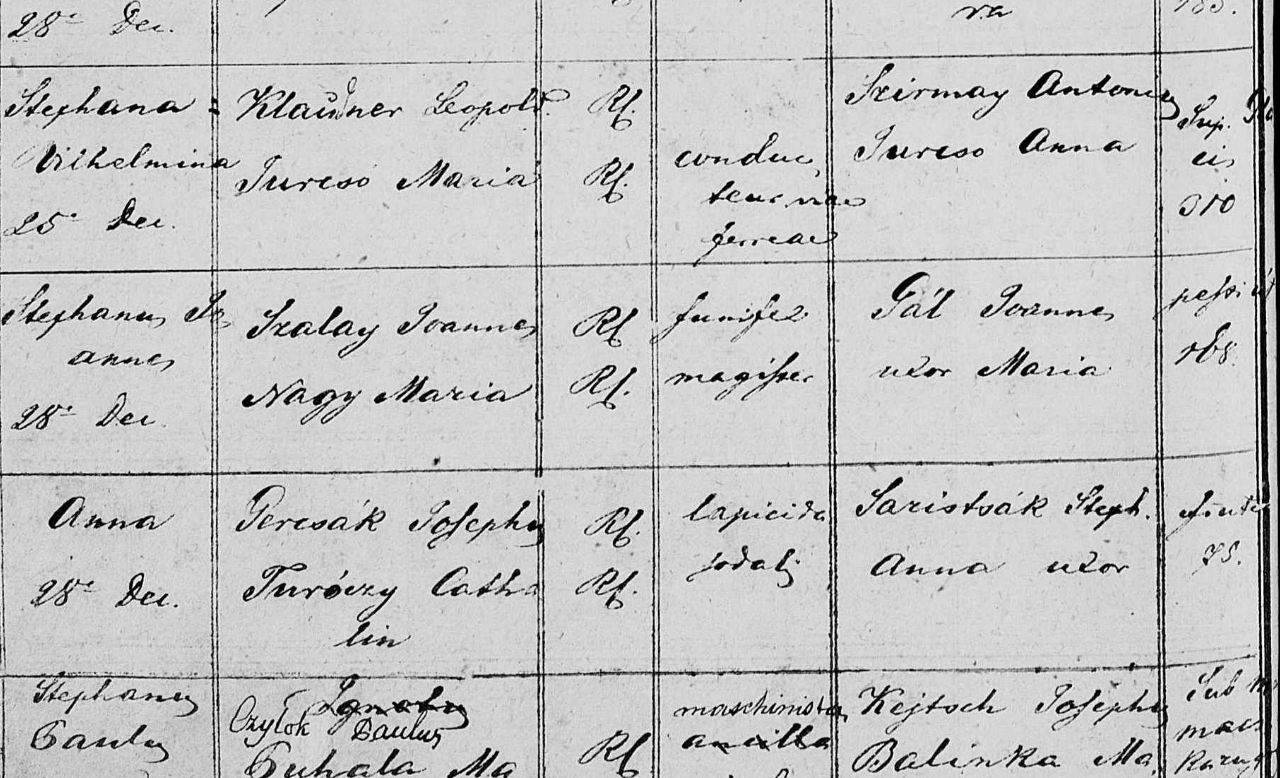 28a Dec.
ra
185.
Stephana =
Vilhelmina
25a Dec.
Klausner Leopold
Jurcso Maria
Rf.
Rf.
conduc
teur viae
ferreae
Szirmay Antonius
Jurcso Anna
Sup.
310
Stephanus Jo
annes
28a Dec.
Szalay Joannes
Nagy Maria
Rf.
Rf.
funifex
magister
Gál Joannes
uxor Maria
168.
Anna
28a Dec.
Gercsák Josephus
Turóczy Catha
lin
Rf.
Rf.
lapicida
sodalis
Saristsák Steph.
Anna uxor
75.
Stephanus
Paulus
Ignatius
Czylok Paulus
Puhala Ma
Rf.
maschinista
ancilla
Kejtsch Josephus
Balinka Ma
Sub